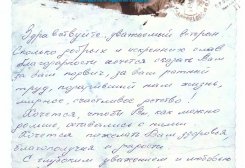 Здравствуйте, уважаемый ветеран!
Сколько добрых и искренних слов
благодарности хочется сказать Вам
за ваш подвиг, за ваш ратный
труд, подаривший нам жизнь,
мирное, счастливое детство!
Хочется, чтобы Вы, как можно
дольше, оставались с нами.
Хочется пожелать Вам здоровья,
благополучия и радости.
С глубоким уважением и любовью